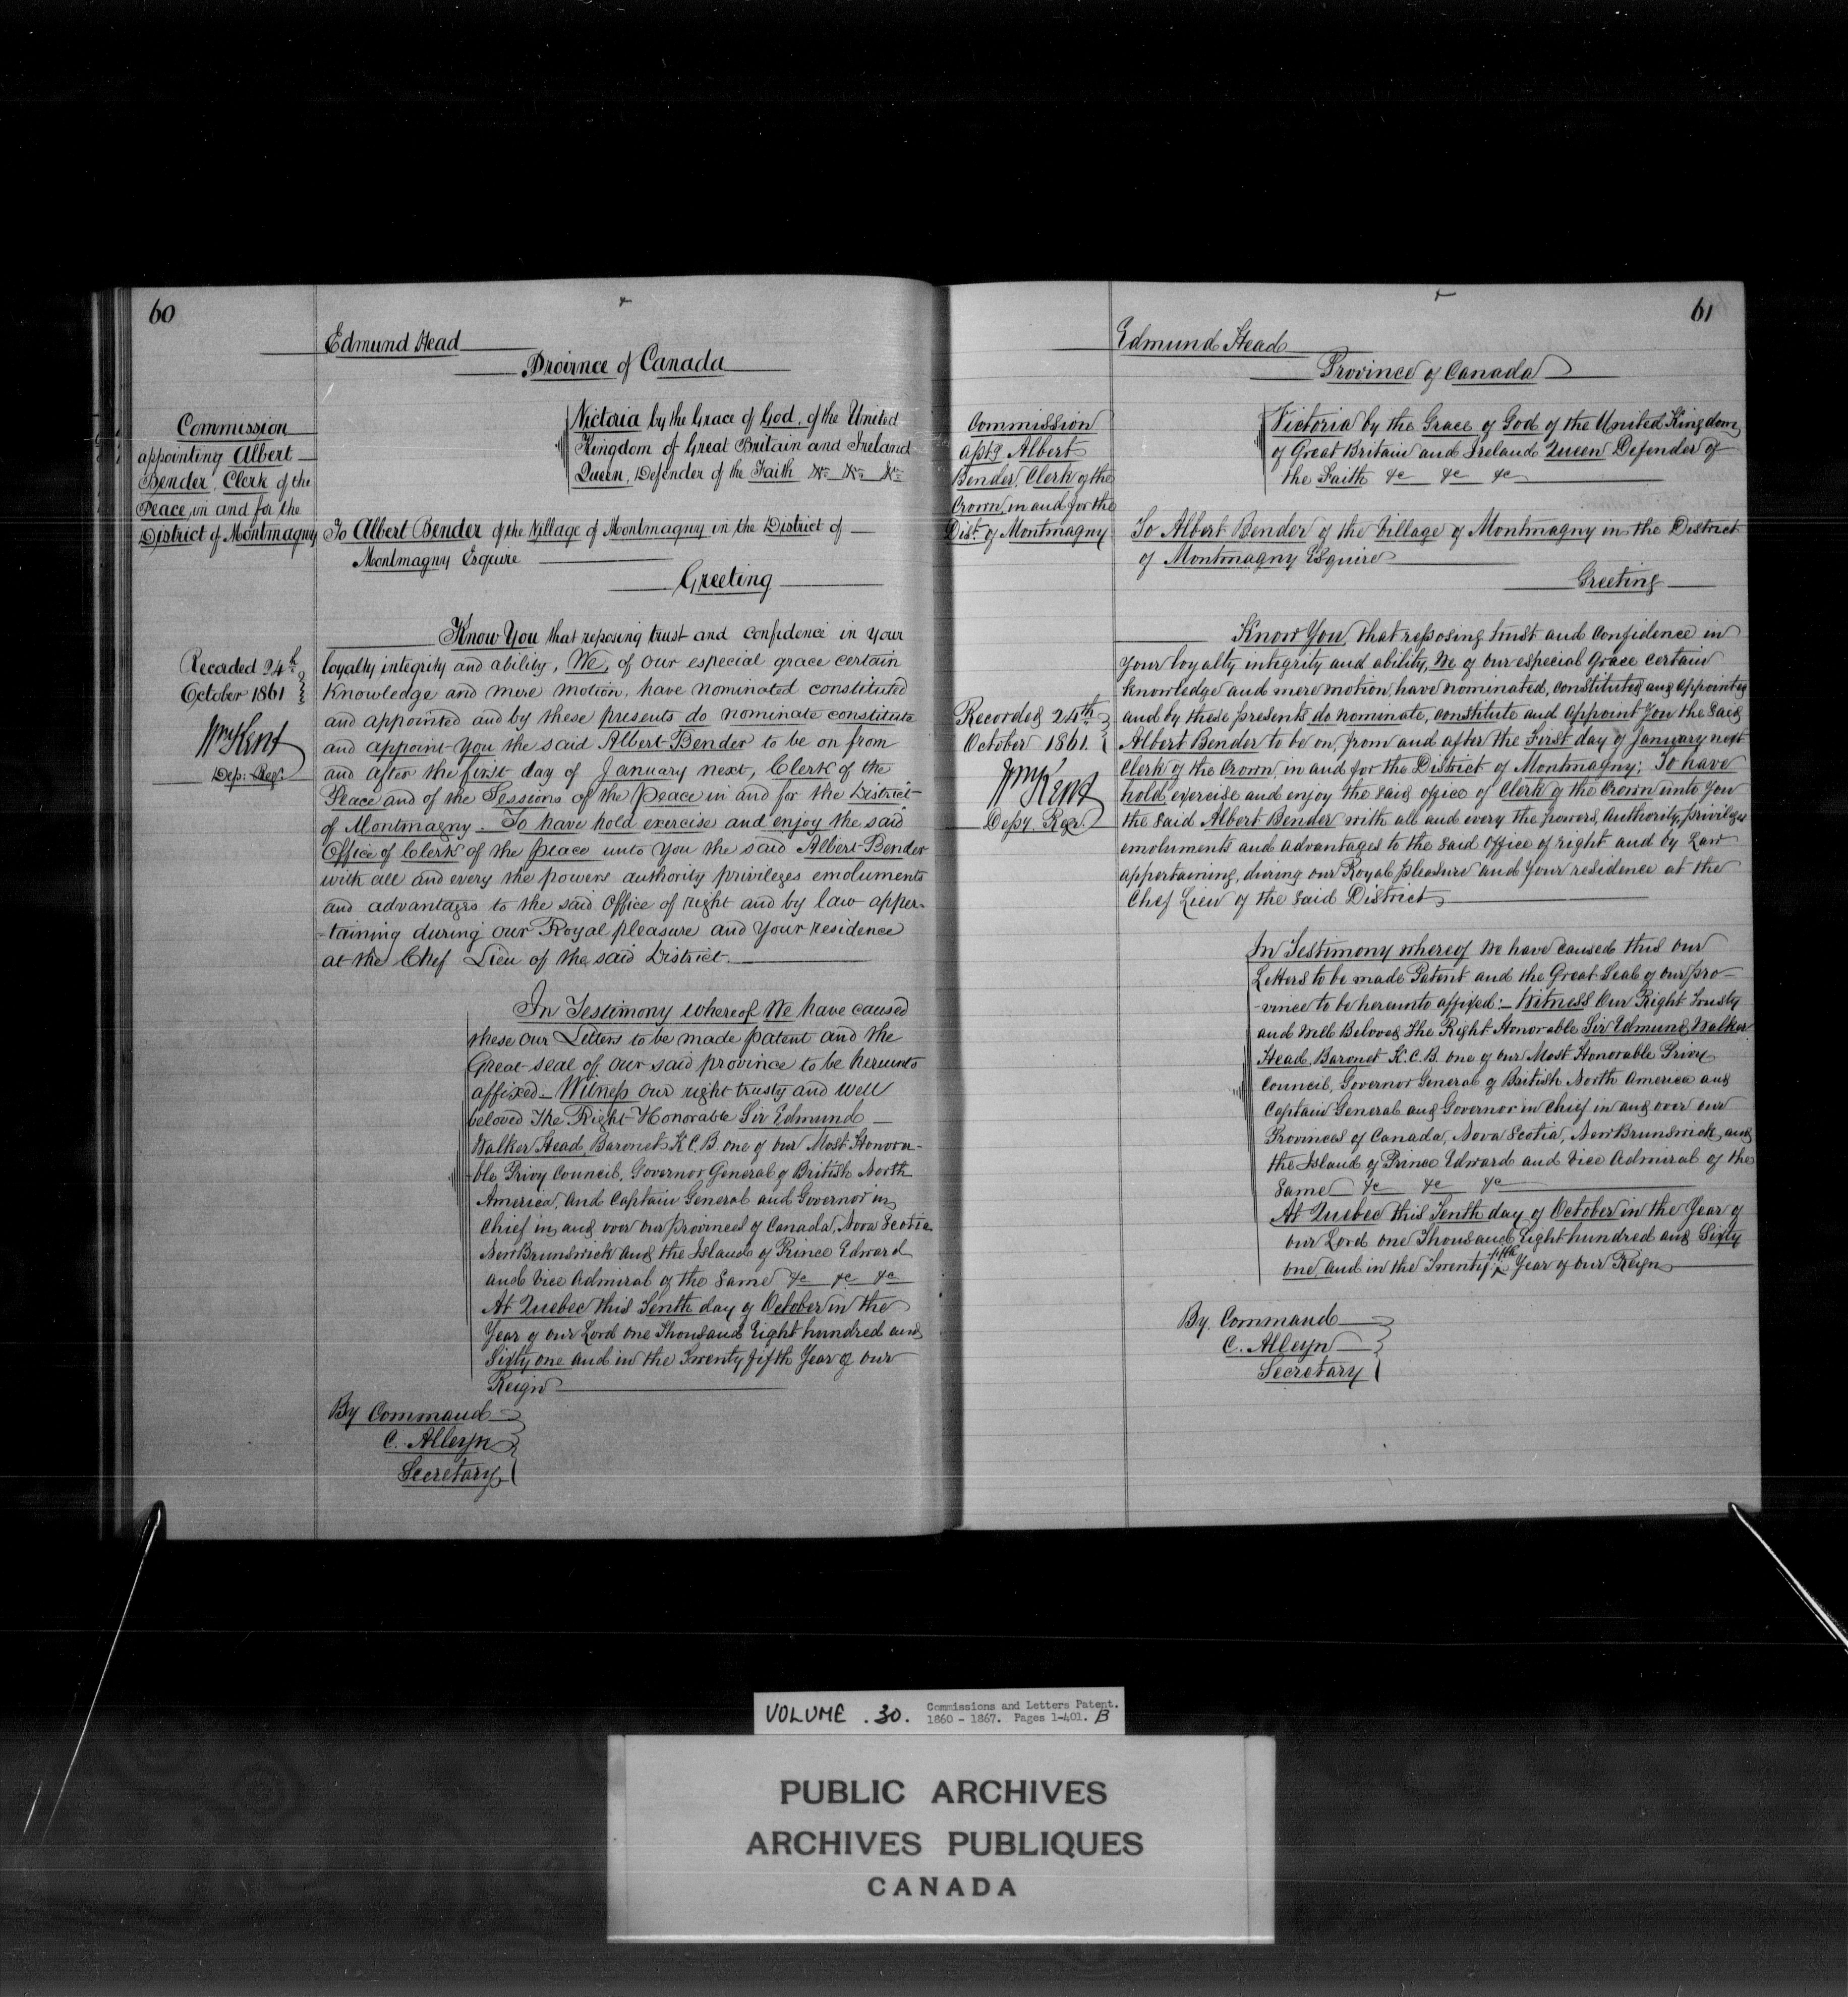 60
Edmund Head
Province of Canada
Commission
appointing Albert
Bender, Clerk of the
Peace, in and for the
District of Montmagny
Victoria by the Grace of God, of the United
Kingdom of Great Britain and Ireland
Queen, Defender of the Faith &c &c &c
To Albert Bender of the Village of Montmagny in the District of
Montmagny Esquire
Greeting
Recorded 24th
October 1861
Wm Kent
Dep: Reg:
Know You that reposing trust and confidence in your
loyalty integrity and ability, We, of our especial grace certain
knowledge and mere motion, have nominated constituted
and appointed and by these presents do nominate constitute
and appoint you the said Albert Bender to be on from
and after the first day of January next, Clerk of the
Peace and of the Sessions of the peace in and for the District
of Montmagny. To have hold exercise and enjoy the said
Office of Clerk of the peace unto You the said Albert Bender
with all and every the powers authority privileges emoluments
and advantages to the said Office of right and by law apper-
-taining during our Royal pleasure and your residence
at the Chef Lieu of the said District.
In Testimony whereof We have caused
these our Letters to be made patent and the
Great seal of our said province to be hereunto
affixed. Witness our right trusty and well
beloved The Right Honorable Sir Edmund
Walker Head, Baronet K.C.B. one of our Most Honora-
-ble Privy Council, Governor General of British North
America, and Captain General and Governor in
Chief in and over our provinces of Canada, Nova Scotia
New Brunswick and the Island of Prince Edward
and Vice Admiral of the Same &c &c &c
At Quebec this Tenth day of October in the
Year of our Lord one Thousand Eight hundred and
Sixty one and in the Twenty fifth Year of our
Reign
By Command
C. Alleyn
Secretary
61
Edmund Head
Province of Canada
Commission
aptg Albert
Bender, Clerk of the
Crown, in and for the
Dist. of Montmagny
Victoria by the Grace of God of the United Kingdom
of Great Britain and Ireland Queen Defender of
the Faith &c &c &c
To Albert Bender of the Village of Montmagny in the District
of Montmagny Esquire
Greeting
Recorded 24th
October 1861.
Wm Kent
Depy Regr
Know You, that reposing trust and confidence in
your loyalty integrity and ability, We of our especial Grace certain
knowledge and mere motion, have nominated, constituted and appointed
and by these presents do nominate, constitute and appoint You the said
Albert Bender to be on, from and after the First day of January next
Clerk of the Crown in and for the District of Montmagny; To have
hold exercise and enjoy the said office of Clerk of the Crown unto You
the said Albert Bender with all and every the powers, Authority, privileges
emoluments and advantages to the said Office of right and by Law
appertaining, during our Royal pleasure and your residence at the
Chef Lieu of the said District,
In Testimony whereof We have caused this our
Letters to be made Patent and the Great Seal of our pro-
-vince to be hereunto affixed:- Witness Our Right Trusty
and Well Beloved The Right Honorable Sir Edmund Walker
Head, Baronet K.C.B. one of our Most Honorable Privy
Council, Governor General of British North America and
Captain General and Governor in Chief in and over our
Provinces of Canada, Nova Scotia, New Brunswick, and
the Island of Prince Edward and Vice Admiral of the
Same &c &c &c
At Quebec this Tenth day of October in the Year of
our Lord one Thousand Eight hundred and Sixty
one, and in the Twenty fifth Year of our Reign
By Command
C. Alleyn
Secretary
VOLUME .30. Commissions and Letters Patent.
1860 - 1867. Pages 1-401. B
PUBLIC ARCHIVES
ARCHIVES PUBLIQUES
CANADA